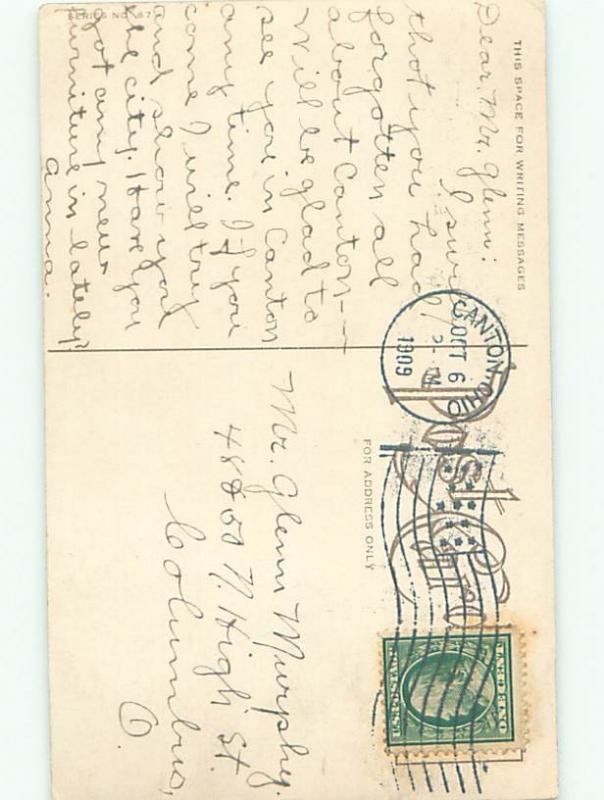 THIS SPACE FOR WRITING MESSAGES
Dear Mr. Glenn:
I
that you had
forgotten all
about Canton—
Will be glad to
see you in Canton
any time. If you
come I will try
and show you
the city. Have you
got any new
furniture in lately?
Anna.
SERIES NO.
CANTON, OHIO
OCT 6
1909
Post Card
FOR ADDRESS ONLY
Mr. Glenn Murphy.
N. High St.
Columbus,
O.